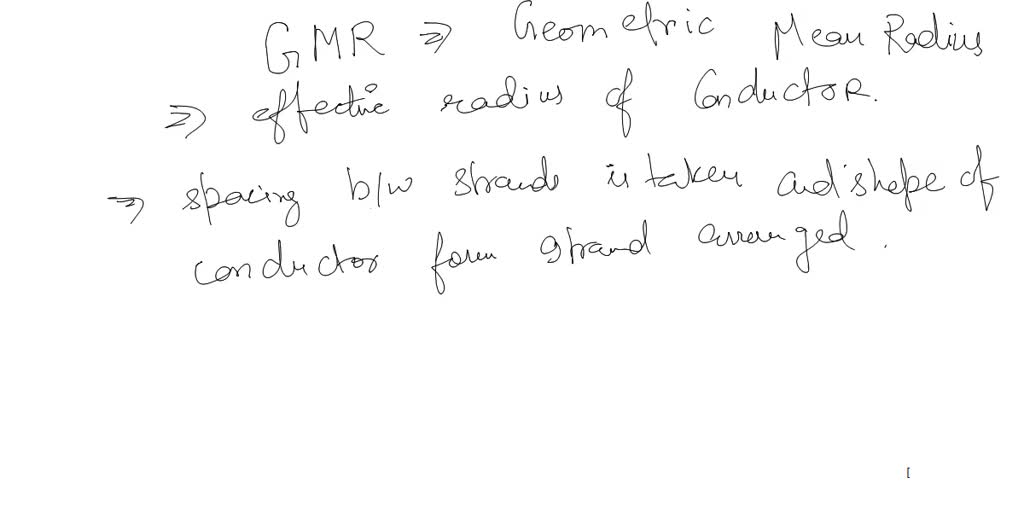 GMR ⇒ Geometric Mean Radius
⇒ effective radius of Conductor.
⇒ spacing b/w strands is taken and shape of
conductor form strand arranged.
[